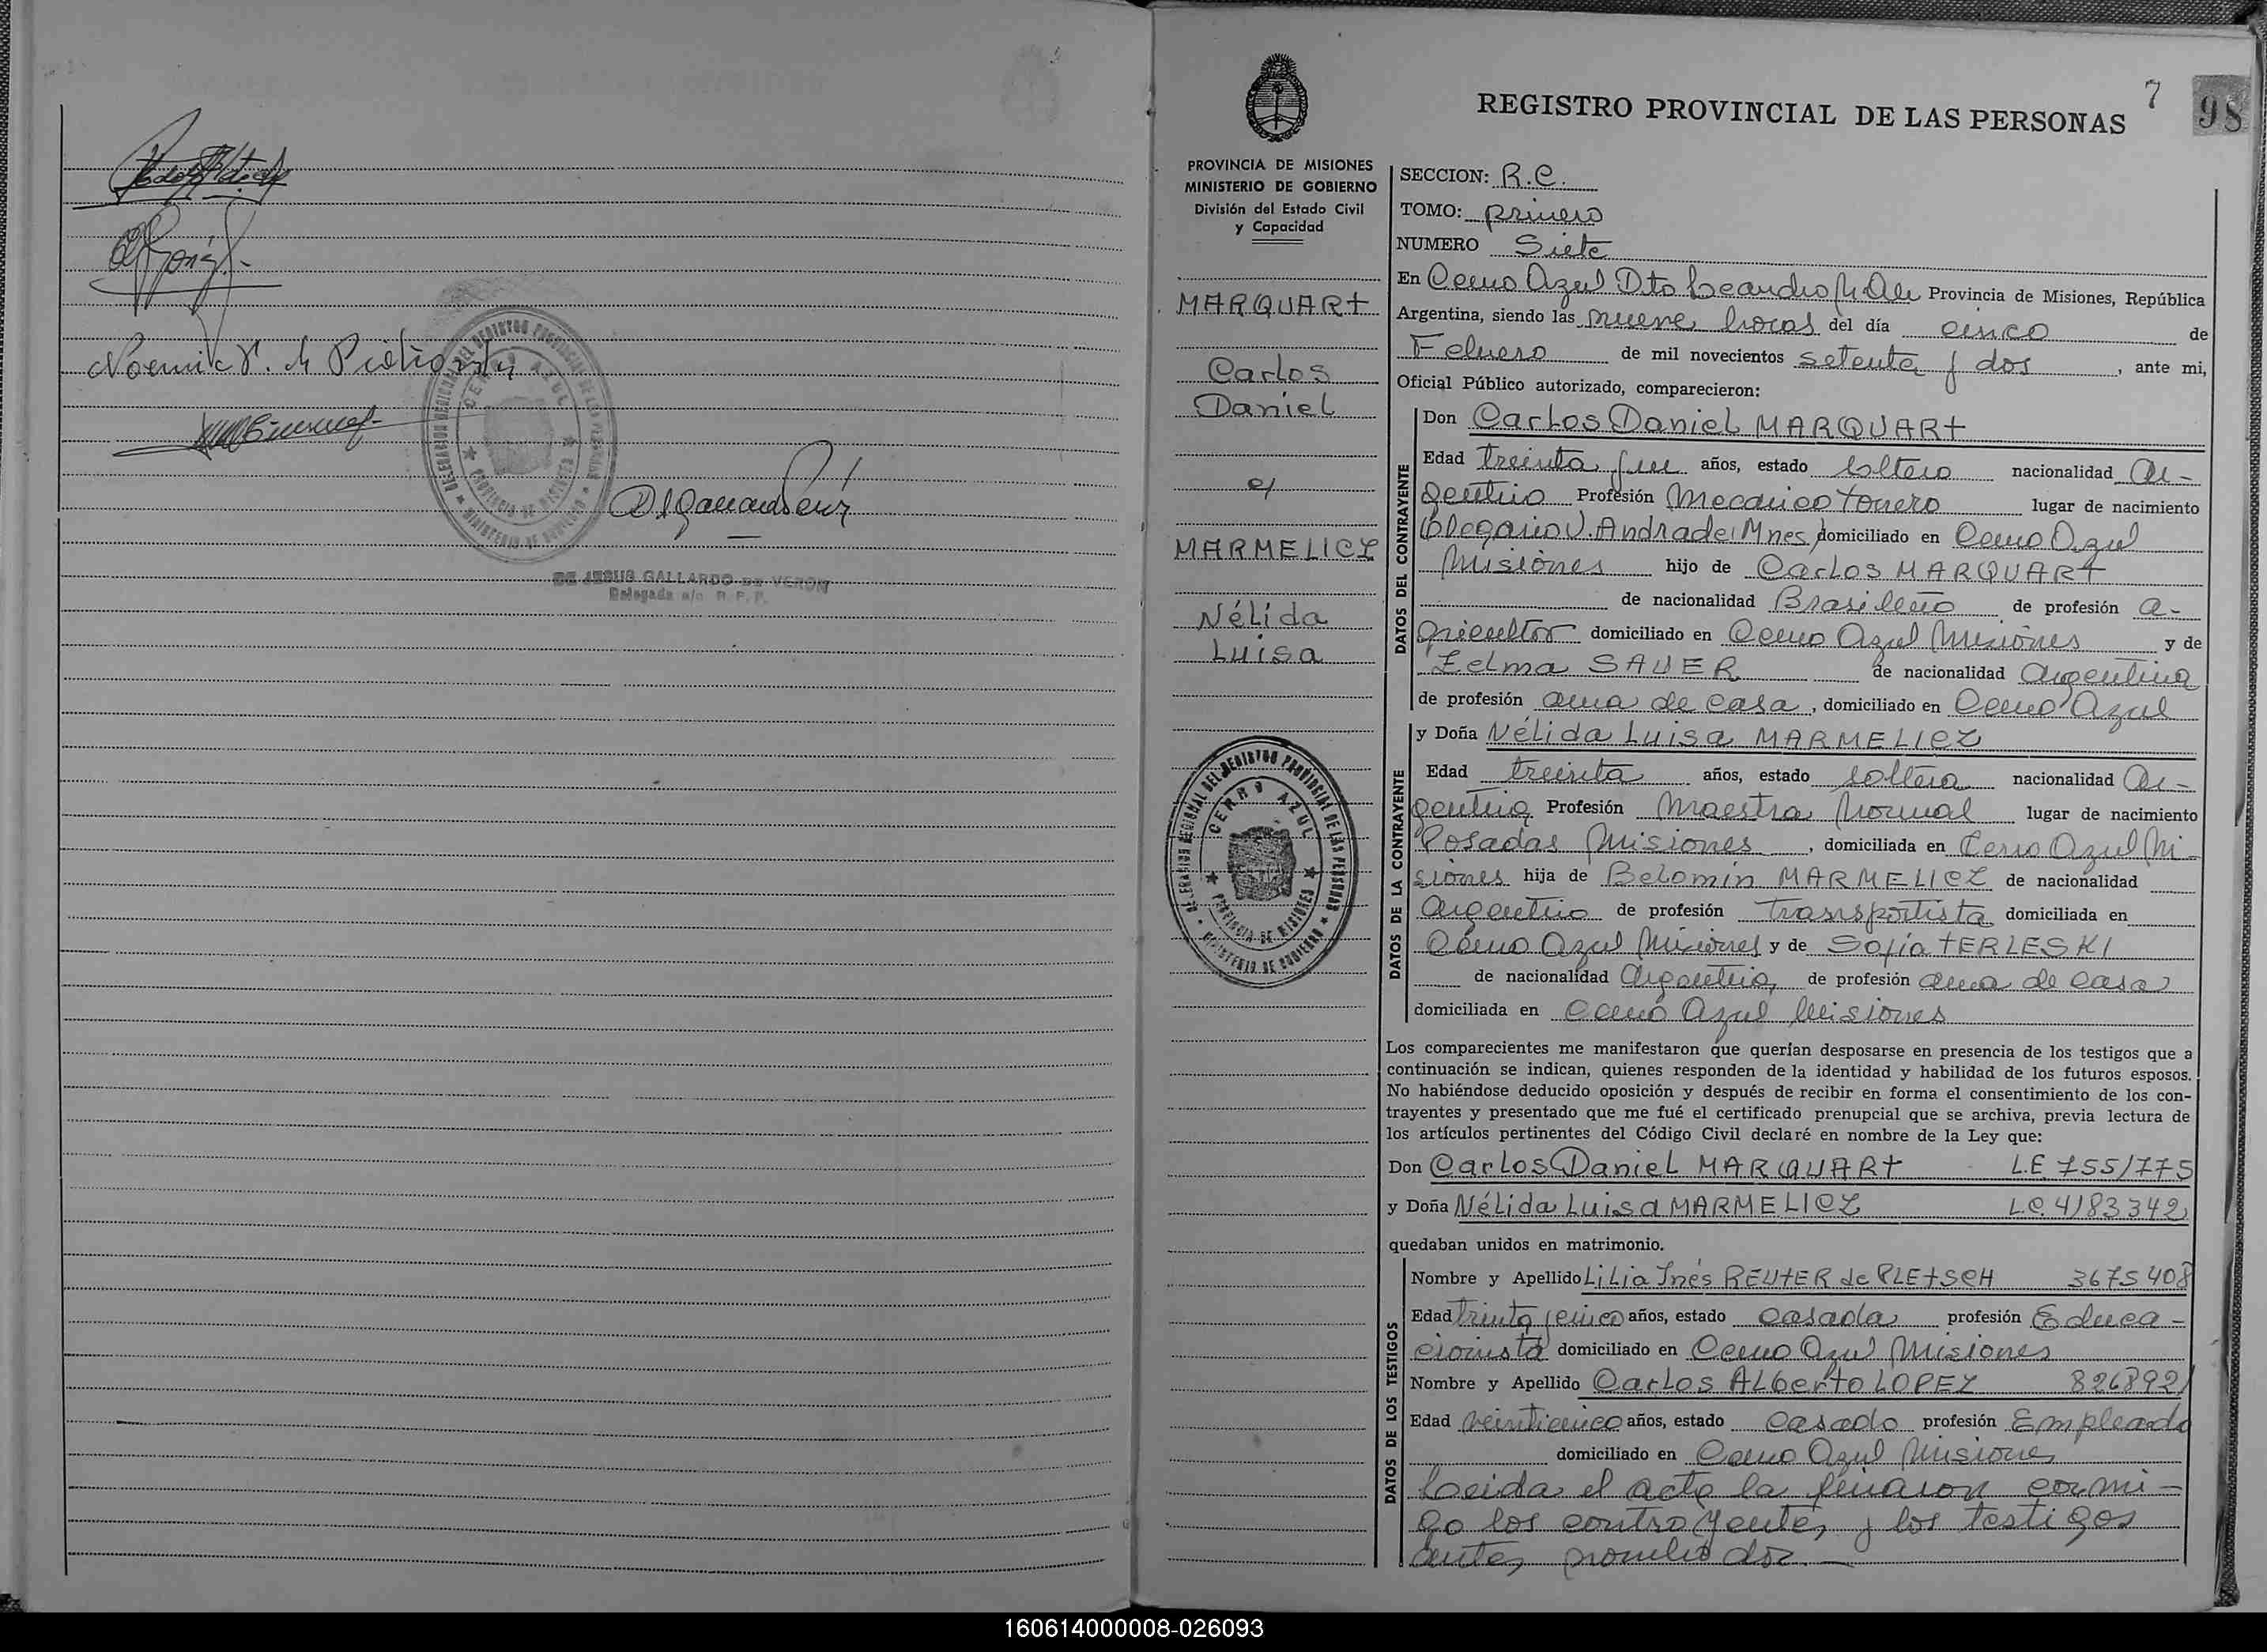 Noemi V. de Pietrowski
DELEGACION REGIONAL DEL REGISTRO PROVINCIAL DE LAS PERSONAS
CERRO AZUL
PROVINCIA DE MISIONES
MINISTERIO DE GOBIERNO
DE JESUS GALLARDO DE VERON
Delegada a/c R. P. P.
7
98
REGISTRO PROVINCIAL DE LAS PERSONAS
PROVINCIA DE MISIONES
MINISTERIO DE GOBIERNO
División del Estado Civil
y Capacidad
MARQUARt
Carlos
Daniel
c/
MARMELICZ
Nélida
Luisa
DELEGACION REGIONAL DEL REGISTRO PROVINCIAL DE LAS PERSONAS
CERRO AZUL
PROVINCIA DE MISIONES
MINISTERIO DE GOBIERNO
SECCION: R.C.
TOMO: primero
NUMERO Siete
En Cerro Azul Dto Leandro N. Alem Provincia de Misiones, República
Argentina, siendo las nueve horas del día cinco de
Febrero de mil novecientos setenta y dos, ante mi,
Oficial Público autorizado, comparecieron:
DATOS DEL CONTRAYENTE
Don Carlos Daniel MARQUARt
Edad treinta y un años, estado soltero nacionalidad Ar-
gentino Profesión Mecanico tornero lugar de nacimiento
Olegario V. Andrade, Mnes, domiciliado en Cerro Azul
Misiones hijo de Carlos MARQUARt
de nacionalidad Brasileño de profesión a-
gricultor domiciliado en Cerro Azul Misiones y de
Zelma SAUER de nacionalidad Argentina
de profesión ama de casa, domiciliado en Cerro Azul
DATOS DE LA CONTRAYENTE
y Doña Nélida Luisa MARMELICZ
Edad treinta años, estado soltera nacionalidad Ar-
gentina Profesión Maestra Normal lugar de nacimiento
Posadas Misiones, domiciliada en Cerro Azul Mi-
siones hija de Belomin MARMELICZ de nacionalidad
argentino de profesión transportista domiciliada en
Cerro Azul Misiones y de Sofia tERLESKI
de nacionalidad argentina, de profesión ama de casa
domiciliada en Cerro Azul Misiones
Los comparecientes me manifestaron que querían desposarse en presencia de los testigos que a
continuación se indican, quienes responden de la identidad y habilidad de los futuros esposos.
No habiéndose deducido oposición y después de recibir en forma el consentimiento de los con-
trayentes y presentado que me fué el certificado prenupcial que se archiva, previa lectura de
los artículos pertinentes del Código Civil declaré en nombre de la Ley que:
Don Carlos Daniel MARQUARt L.E 7551775
y Doña Nélida Luisa MARMELICZ L.C. 4183342
quedaban unidos en matrimonio.
DATOS DE LOS TESTIGOS
Nombre y Apellido Lilia Inés REUtER de PLEtSCH 3675408
Edad trinta y cinco años, estado casada profesión Educa-
cionista domiciliado en Cerro Azul Misiones
Nombre y Apellido Carlos ALberto LOPEZ 8268921
Edad veinticinco años, estado casado profesión Empleado
domiciliado en Cerro Azul Misiones
Leida el acta la firmaron conmi-
go los contrayentes y los testigos
antes nombrados.
160614000008-026093